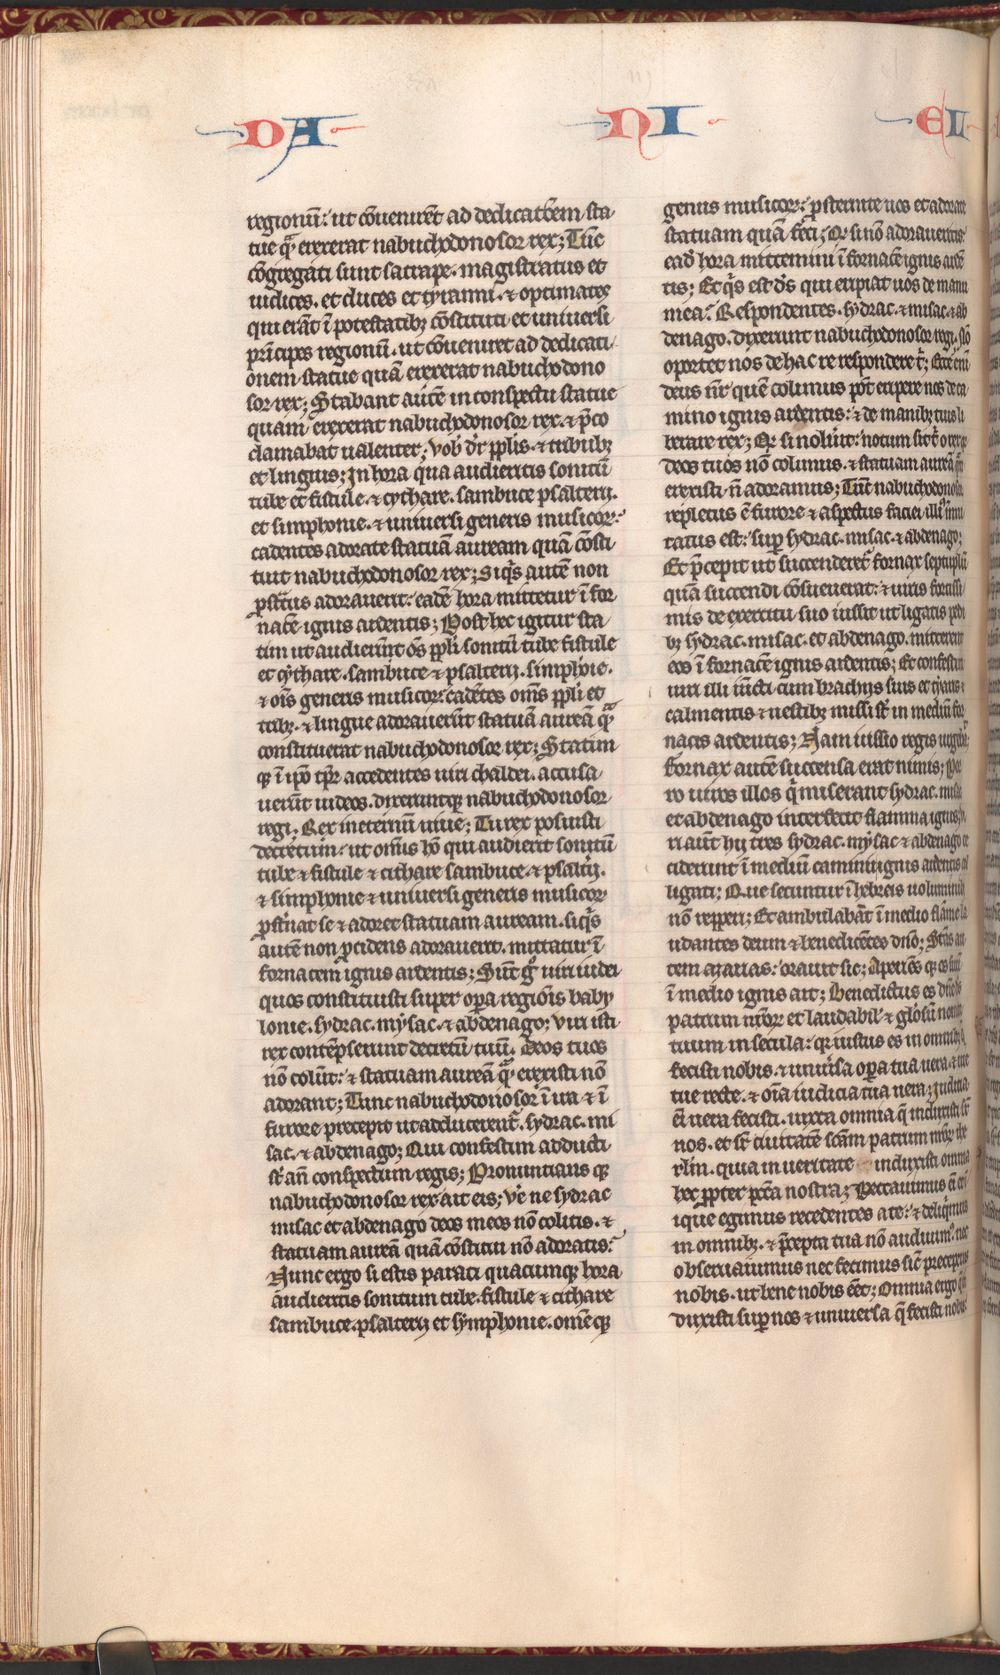 DA NI EL
regionū. ut cōuenirēt ad dedicatōem sta
tue qͣ̄ erexerat nabuchodonosor rex; Tūc
cōgregati sunt satrape. magistratus et
iudices. et duces et tyranni. ⁊ optimates
qui erāt ī potestatibꝫ cōstituti et uniuersi
prīcipes regionū. ut cōuenirēt ad dedicati
onem statue quā erexerat nabuchodono
sor rex; Stabant autē in conspectu statue
quam erexerat nabuchodonosor rex. ⁊ p̄co
clamabat ualenter; Vob̄ dr̄ pplīs. ⁊ tribubꝫ
et linguis; In hora qua audieritis sonitū
tube et fistule. ⁊ cythare. sambuce psalterij.
et simphonie. ⁊ uniuersi generis musicoꝝ.
cadentes adorate statuā auream quā cōsti
tuit nabuchodonosor rex; Si qͥs autē non
pͦstͣtus adorauerit. eadē hora mittetur ī for
nacē ignis ardentis; Post hec igitur sta
tim ut audierūt oēs ppli sonitū tube fistule
et cythare. sambuce ⁊ psalterij. simphōie.
⁊ oīs generis musicoꝝ. cadētes om̄s ppli et
tribꝫ. ⁊ lingue adorauerūt statuā aureā qͣ̄
constituerat nabuchodonosor rex; Statim
qꝫ ī ipō tp̄r accedentes uiri chaldei. accusa
uerūt iudeos. dixeruntqꝫ nabuchodonosor
regi. Rex in eternū uiue; Tu rex posuisti
decretum. ut omīs hō qui audierit sonitū
tube ⁊ fistule ⁊ cithare sambuce. ⁊ psaltīj.
⁊ simphonie ⁊ uniuersi generis musicoꝝ
pͦstͥnat se ⁊ adoret statuam auream. si qͥs
autē non pͦcidens adorauerit. mittatur ī
fornacem ignis ardentis; Sūt gͦ uiri iudei
quos constituisti super opͣa regiōis baby
lonie. sydrac. mysac. ⁊ abdenago; Viri isti
rex contēpserunt decretū tuū. Deos tuos
nō colūt. ⁊ statuam aureā qͣ̄ erexisti nō
adorant; Tunc nabuchodonosor ī ira ⁊ ī
furore precepit ut adducerent̄. sydrac. mi
sac. ⁊ abdenago; Qui confestim adducti
sͭ añ conspectum regis; Pronuntians qꝫ
nabuchodonosor rex ait eis; Ve ne sydrac
misac et abdenago deos meos nō colitis. ⁊
statuam aureā quā cōstitui nō adoratis.
Nunc ergo si estis parati quacumqꝫ hora
audieritis sonitum tube. fistule ⁊ cithare
sambuce. psalterij et symphonie. omē qꝫ
genus musicoꝝ. pͦsternite uos et adorate
statuam quā feci; Qͦ si nō adoraueritis.
eadē hora mittemini ī fornacē ignis ardē
tis; Et qͥs est dͥs qui eripiat uos de manu
mea. Respondentes. sydrac. ⁊ misac. ⁊ ab
denago. dixerunt nabuchodonosor regi. Nō
oportet nos de hac re respondere tͥ; Ecce enī
deus nr̄ quē colimus pōt eripere nos de ca
mino ignis ardentis. ⁊ de manibꝫ tuis li
berare rex; Qͦ si noluīt. notum sit tͥ o rex qꝛ
deos tuos nō colimus. ⁊ statuam aureā qͣ̄
erexisti. n̄ adoramus; Tūc nabuchodonosor
repletus ē furore ⁊ aspectus faciei illiͥ īmu
tatus est. sup̄ sydrac. misac. ⁊ abdenago;
Et p̄cepit ut succenderet̄ fornax septuplū
quā succendi cōsueuerat. ⁊ uiris fortissi
mis de exercitu suo iussit ut ligatis pedi
bꝫ sydrac. misac. et abdenago. mitterent
eos ī fornacē ignis ardentis; Et confestim
uiri illi iūcti cum brachijs suis et tyaris ⁊
calmentis ⁊ uestibꝫ missi sͭ in mediū for
nacis ardentis; Nam iussio regis urgebat;
fornax autē succensa erat nimis; Por
ro uiros illos qͥ miserant sydrac. misac
et abdenago interfecit flamma ignis;
ri aūt hij tres sydrac. mysac ⁊ abdenago ce
ciderunt ī mediū camini ignis ardentis col
ligati; Que secuntur ī hebreis uoluminibꝫ
nō repperi; Et ambulabāt ī medio flāme la
udantes deum ⁊ benedicētes dn̄o; Stās au
tem azarias. orauit sic; Aperiēs qꝫ os suū
ī medio ignis ait; Benedictus es dn̄e ds
patrum nr̄oꝝ et laudabilͥ ⁊ glōsū nomē
tuum in secula. qꝛ iustus es in omnibꝫ q̄
fecisti nobis. ⁊ uniūsa opͣa tua uera. ⁊ uie
tue recte. ⁊ oīa iudicia tua uera; Iudicia
eī uera fecisti. iuxta omnia q̄ induxisti sͬ
nos. et sͬ ciuitatē scām patrum nr̄oꝝ ihe
rlm̄. quia in ueritate induxisti omnia
hec pp̄ter pctā nostra; Peccauimus eī ⁊ in
ique egimus recedentes a te. ⁊ deliqͥmus
in omnibꝫ. ⁊ p̄cepta tua nō audiuimꝰ. nec
obseruauimus nec fecimus sic̄ preceperas
nobis. ut bene nobis eēt; Omnia ergo q̄ in
duxisti sup̄ nos ⁊ uniuersa q̄ fecisti nobis.